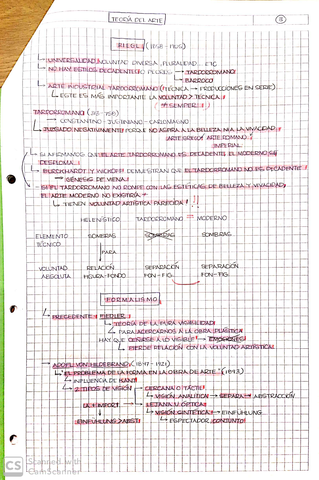 TEORÍA DEL ARTE
RIEGL (1858 - 1905)
UNIVERSALIDAD, VOLUNTAD DIVERSA, PLURALIDAD, ETC
NO HAY ESTILOS DECADENTES (O PEORES) → TARDORROMANO
→ BARROCO
ARTE INDUSTRIAL TARDORROMANO (TÉCNICA → PRODUCCIONES EN SERIE)
ESTE ES MÁS IMPORTANTE LA VOLUNTAD > TÉCNICA
↑ SEMPER
TARDORROMANO
CONSTANTINO - JUSTINIANO - CARLOMAGNO
JUZGADO NEGATIVAMENTE PORQUE NO ASPIRA A LA BELLEZA NI A LA VIVACIDAD
ARTE GRIEGO ARTE ROMANO
IMPERIAL
SI AFIRMAMOS QUE EL ARTE TARDORROMANO ES DECADENTE, EL MODERNO SE
DESPLOMA
BURCKHARDT Y WICKOFF DEMUESTRAN QUE EL TARDORROMANO NO ES DECADENTE
GÉNESIS DE VIENA
SI EL TARDORROMANO NO ROMPE CON LAS ESTÉTICAS DE BELLEZA Y VIVACIDAD,
EL ARTE MODERNO NO EXISTIRÍA
TIENEN VOLUNTAD ARTÍSTICA PARECIDA !!
HELENÍSTICO TARDORROMANO = MODERNO
ELEMENTO SOMBRAS SOMBRAS SOMBRAS
TÉCNICO
PARA
VOLUNTAD RELACIÓN SEPARACIÓN SEPARACIÓN
ABSOLUTA FIGURA-FONDO FON-FIG. FON-FIG.
FORMALISMO
PRECEDENTE: FIEDLER
TEORÍA DE LA PURA VISIBILIDAD
PARA ACERCARNOS A LA OBRA PLÁSTICA
HAY QUE CEÑIRSE A LO VISIBLE
PIERDE RELACIÓN CON LA VOLUNTAD ARTÍSTICA
ADOLF VON HILDEBRAND (1847 - 1921)
"EL PROBLEMA DE LA FORMA EN LA OBRA DE ARTE" (1893)
INFLUENCIA DE KANT
2 TIPOS DE VISIÓN → CERCANA O TÁCTIL
VISIÓN ANALÍTICA → SEPARA → ABSTRACCIÓN
LA + IMPORT → LEJANA U ÓPTICA
VISIÓN SINTÉTICA → EINFÜHLUNG
EINFÜHLUNG > ABST. ESPECTADOR CONJUNTO
CS Scanned with
CamScanner